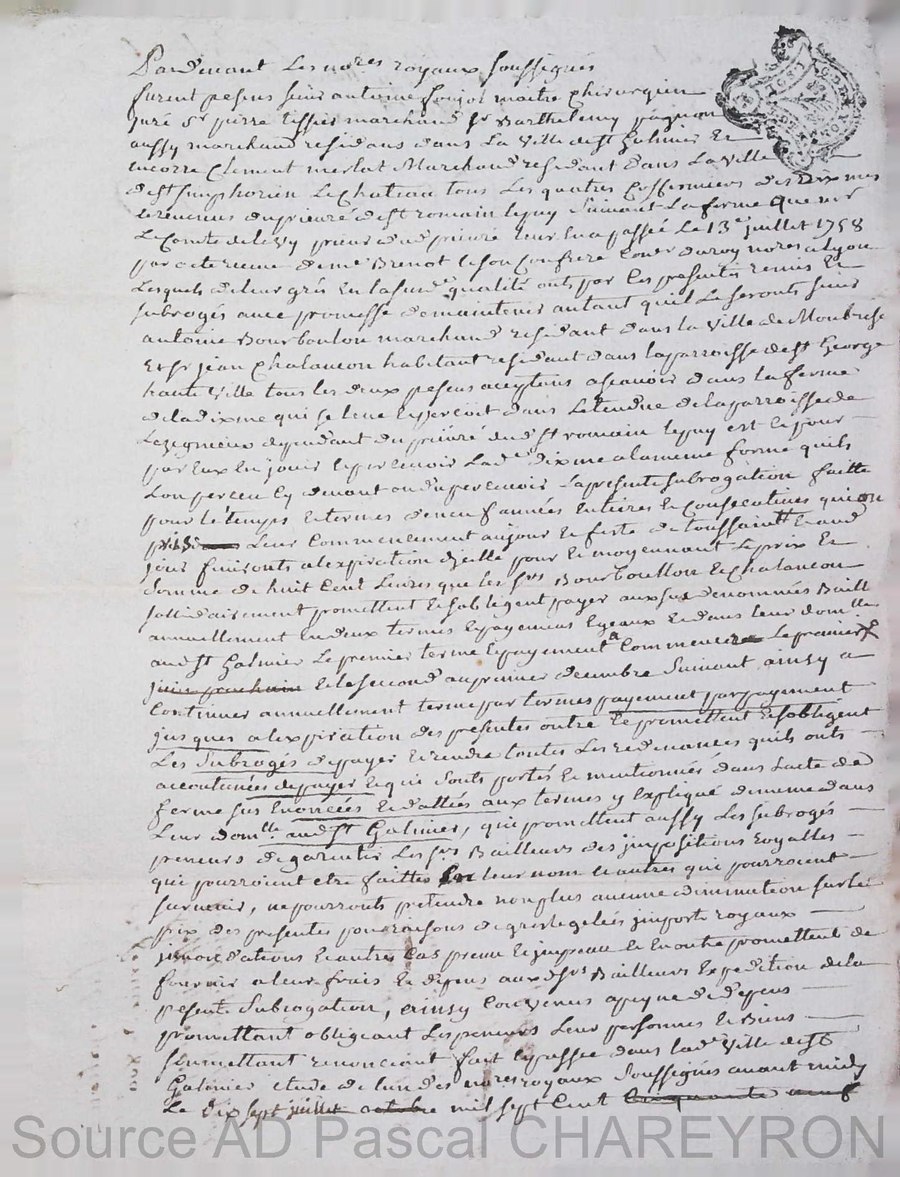 Pardevant Les no.res royaux soussignés
furent presens sieur antoine foujol maitre Chirurgien
juré Sr pierre tissier marchand Sr Barthelemy pagnon
aussy marchand residans dans La Ville de St Galmier Et
Encorre Clement merlat Marchand residant dans La Ville
de St Simphorien Le Chateau tous Les quatres Cofermiers des Dixmes
Et revenus du prieuré de St romain lepuy Suivant La ferme Que mr
Le Comte de levy prieur dud prieuré leur En a passée Le 13e juillet 1758
par acte reçeu de me Brenot & son Confrere Coner du roy no.res a Lyon
Lesquels de leur grés En lasusde qualité onts par Les presentes remis Et
subrogés avec promesse de maintenir autant quils Le seronts sieur
antoine Bourboulon marchand residant dans la Ville de Monbrison
Et Sr jean Chalancon habitant residant dans la parroisse de St George
haute Ville tous les deux presens aceptens ascavoir dans la ferme
de la dixme qui se leve Et percoit dans Letendue de la parroisse de
Lezegnieux dependant du prieuré dud St romain lepuy Et ce pour
par Eux En jouir Et percevoir Lade Dixme a la meme forme quils
Lon perceu Ey devant ou du percevoir La presente subrogation faitte
pour le temps Et termes de neuf années Entieres Et Consecutives qui on
pris Leur Commencement aujour Et feste de toussaint Et aud
jour finironts alexpiration d'jcelle pour Et moyennant Le prix Et
somme de huit Cent Livres que les Srs Bourboullon Et chalancon
sollidairement promettent Et soblegent payer aux sus denommés Baill
annuellement En deux termes Et payemens Egeaux Et dans leur domlle
aud St Galmier Le premier terme Et payement a Commencer Le premier
juin prochain Et le second au premier decembre Suivant, ainsy a
Continuer annuellement terme par terme payement par payement
jusques alexpiration des presentes outre Ce promettent Et sobligent
Les Subrogés de payer Et rendre toutes Les redevances quils onts
accoutumées de payer Et qui sonts portés Et mentionnés dans Lacte de
ferme sus Enoncées Et dattées aux termes y Expliqué de meme dans
Leur domlle aud St Galmier, qui promettent aussy Les subrogés
preneurs de garentir Les Srs Bailleurs des jmpositions royalles
qui pourroient etre faittes sur leur nom Et autres qui pourroient
survenir, ne pourronts pretendre non plus aucune diminution sur le
prix des presentes pour raisons de grele gelées jmpots royaux
jnnondations Et autres Cas preveu Et jmpreveu Et En outre promettent de
fournir a leur frais Et depens auxd Srs Bailleurs Expedition de la
presente Subrogation, ainsy Convenus a peyne de depens
promettant obligeant Les preneurs Leur personnes Et Biens
soumettant renoncient fait Et passée dans lade Ville de St
Galmier etude de lun des no.res royaux soussignés avant midy
Le dix sept juillet octobre mil sept Cent Cinquante neuf
Source AD Pascal CHAREYRON